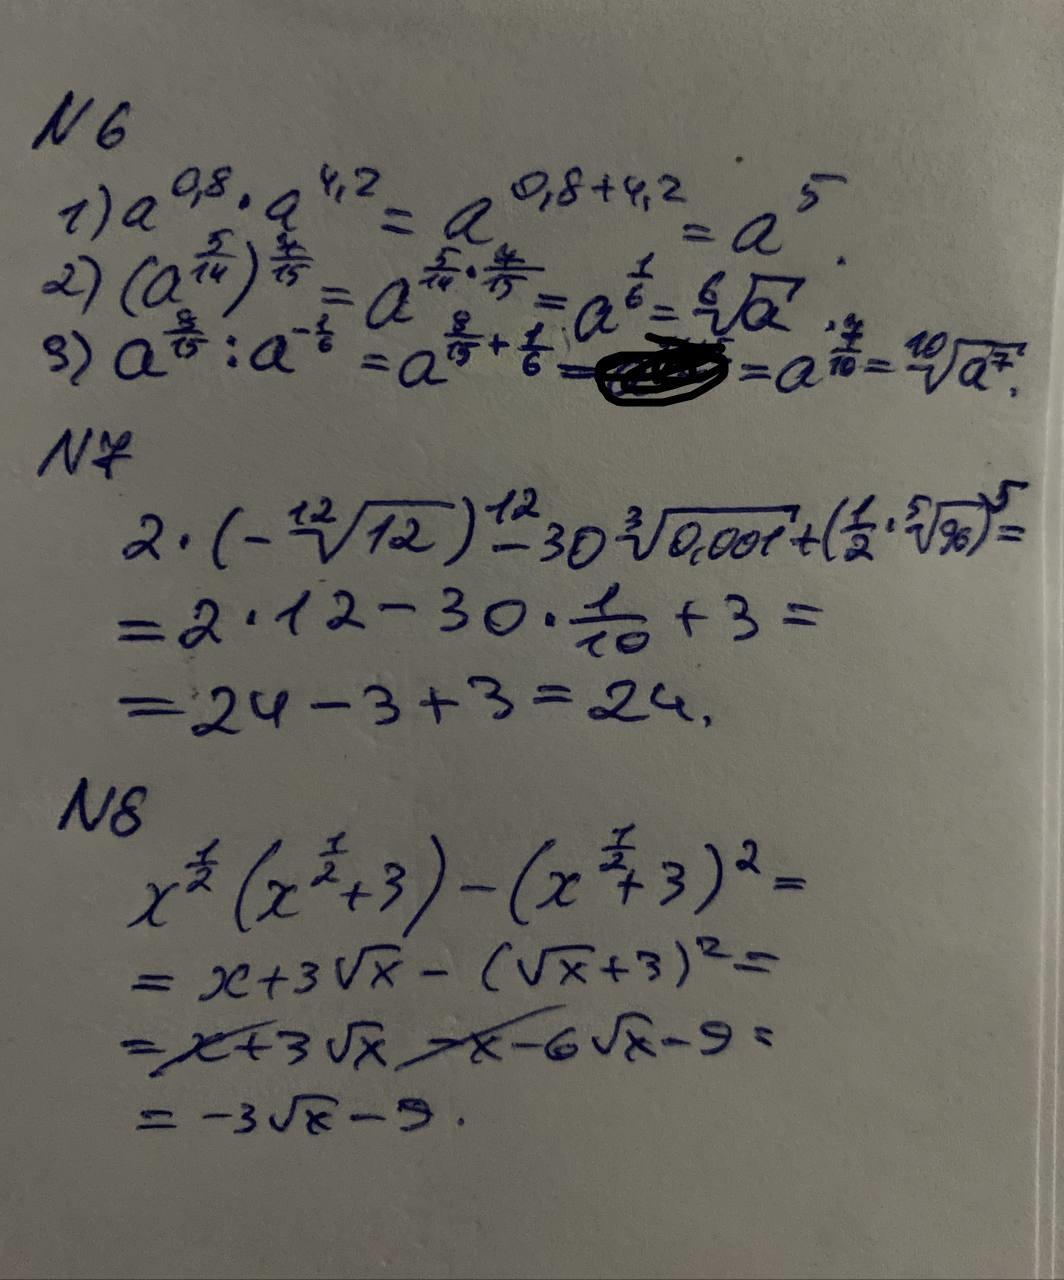 N6
1) a^{0,8} · a^{4,2} = a^{0,8+4,2} = a^5.
2) (a^{5/14})^{7/15} = a^{5/14 · 7/15} = a^{1/6} = ⁶√a.
3) a^{8/15} : a^{-1/6} = a^{8/15 + 1/6} = = a^{7/10} = ¹⁰√a^7.
N7
2 · (- ¹²√12)^{12} - 30 ³√0,001 + (1/2 · ⁵√96)^5 =
= 2 · 12 - 30 · 1/10 + 3 =
= 24 - 3 + 3 = 24.
N8
x^{1/2} (x^{1/2} + 3) - (x^{1/2} + 3)^2 =
= x + 3√x - (√x + 3)^2 =
= x + 3√x - x - 6√x - 9 =
= -3√x - 9.